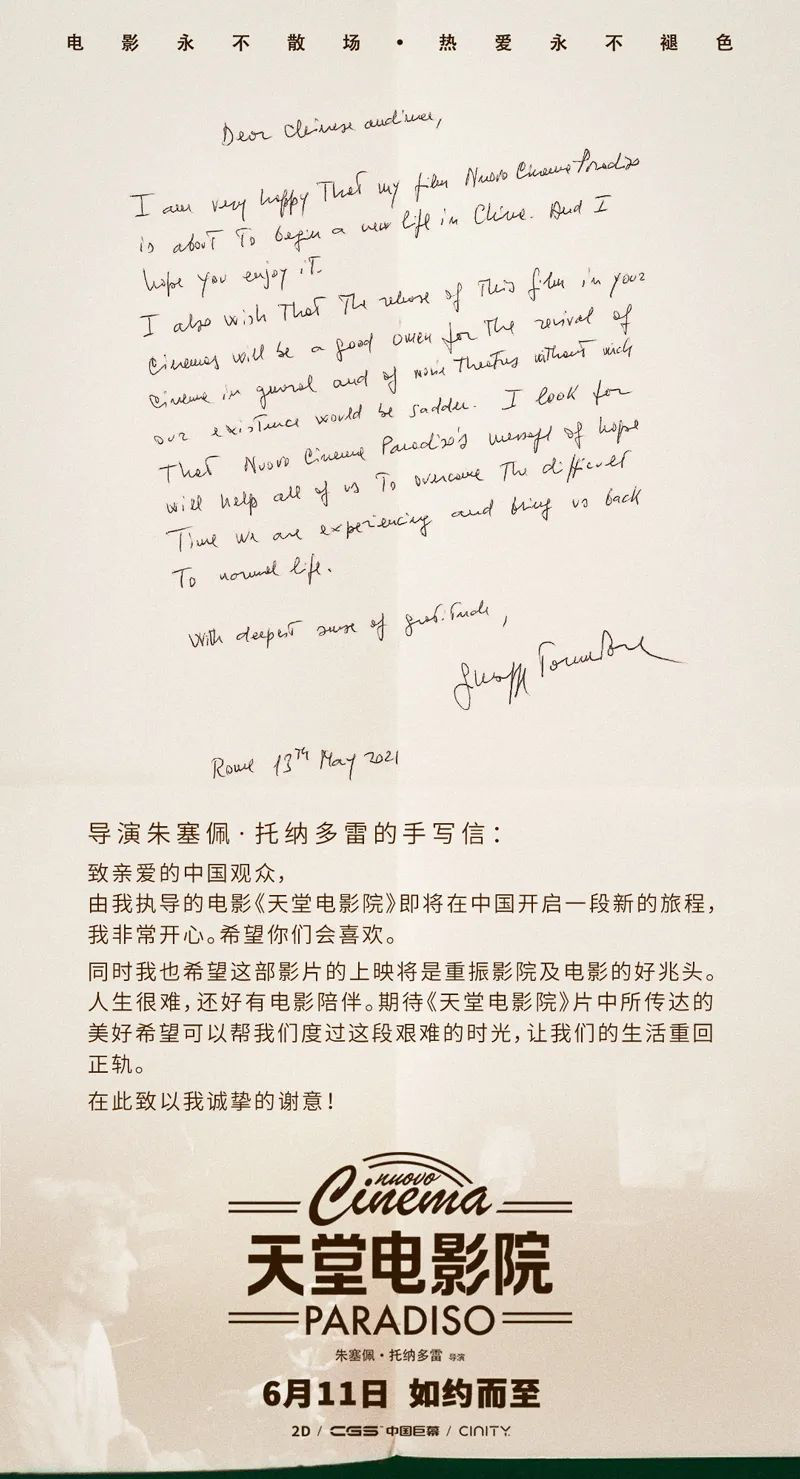 电影永不散场·热爱永不褪色
Dear Chinese audience,
I am very happy That my film Nuovo Cinema Paradiso
is about To begin a new life in China. And I
hope you enjoy iT.
I also wish That The release of This film in your
cinemas will be a good omen for The revival of
cinema in general and of movie Theatres without wich
our existence would be sadder. I look for
That Nuovo Cinema Paradiso's message of hope
will help all of us To overcome The difficult
Time we are experiencing and bring us back
To normal life.
With deepest sense of gratitude,
Giuseppe Tornatore
Rome 13TH May 2021
导演朱塞佩·托纳多雷的手写信：
致亲爱的中国观众，
由我执导的电影《天堂电影院》即将在中国开启一段新的旅程，
我非常开心。希望你们会喜欢。
同时我也希望这部影片的上映将是重振影院及电影的好兆头。
人生很难，还好有电影陪伴。期待《天堂电影院》片中所传达的
美好希望可以帮我们度过这段艰难的时光，让我们的生活重回
正轨。
在此致以我诚挚的谢意！
nuovo
Cinema
天堂电影院
PARADISO
朱塞佩·托纳多雷 导演
6月11日 如约而至
2D / CGS™中国巨幕 / CINITY